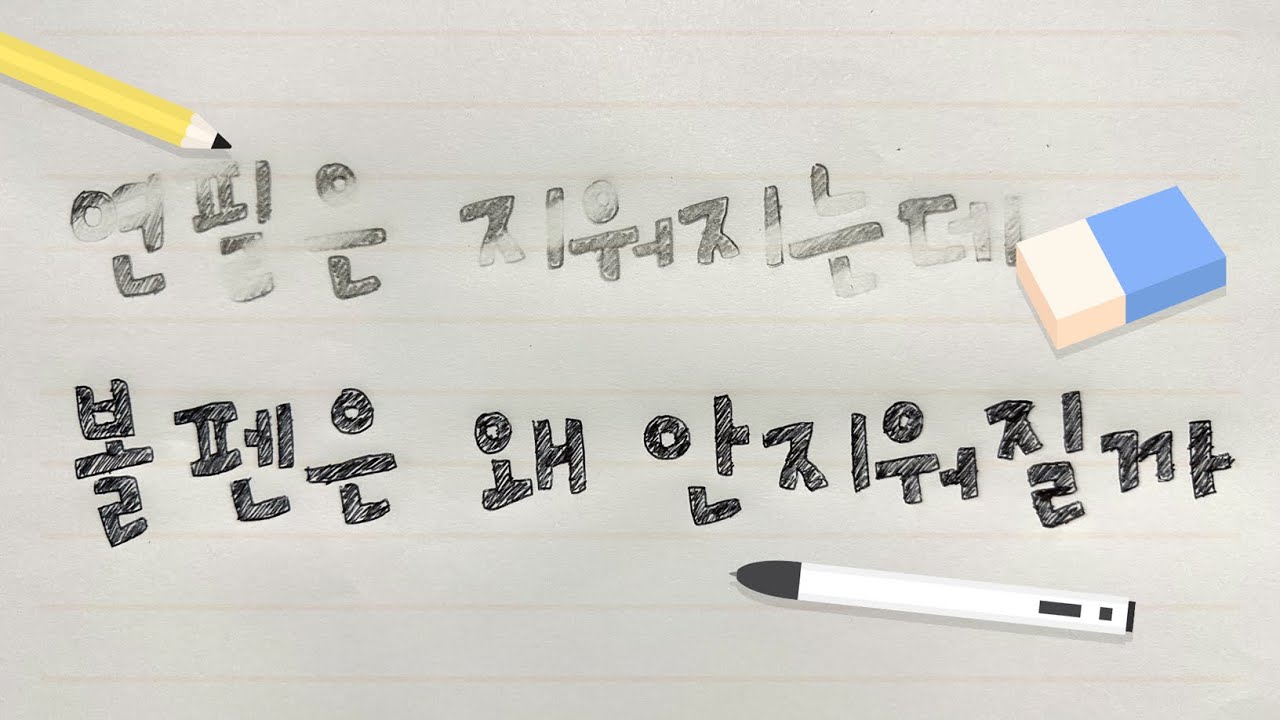 연필은 지워지는데
볼펜은 왜 안지워질까